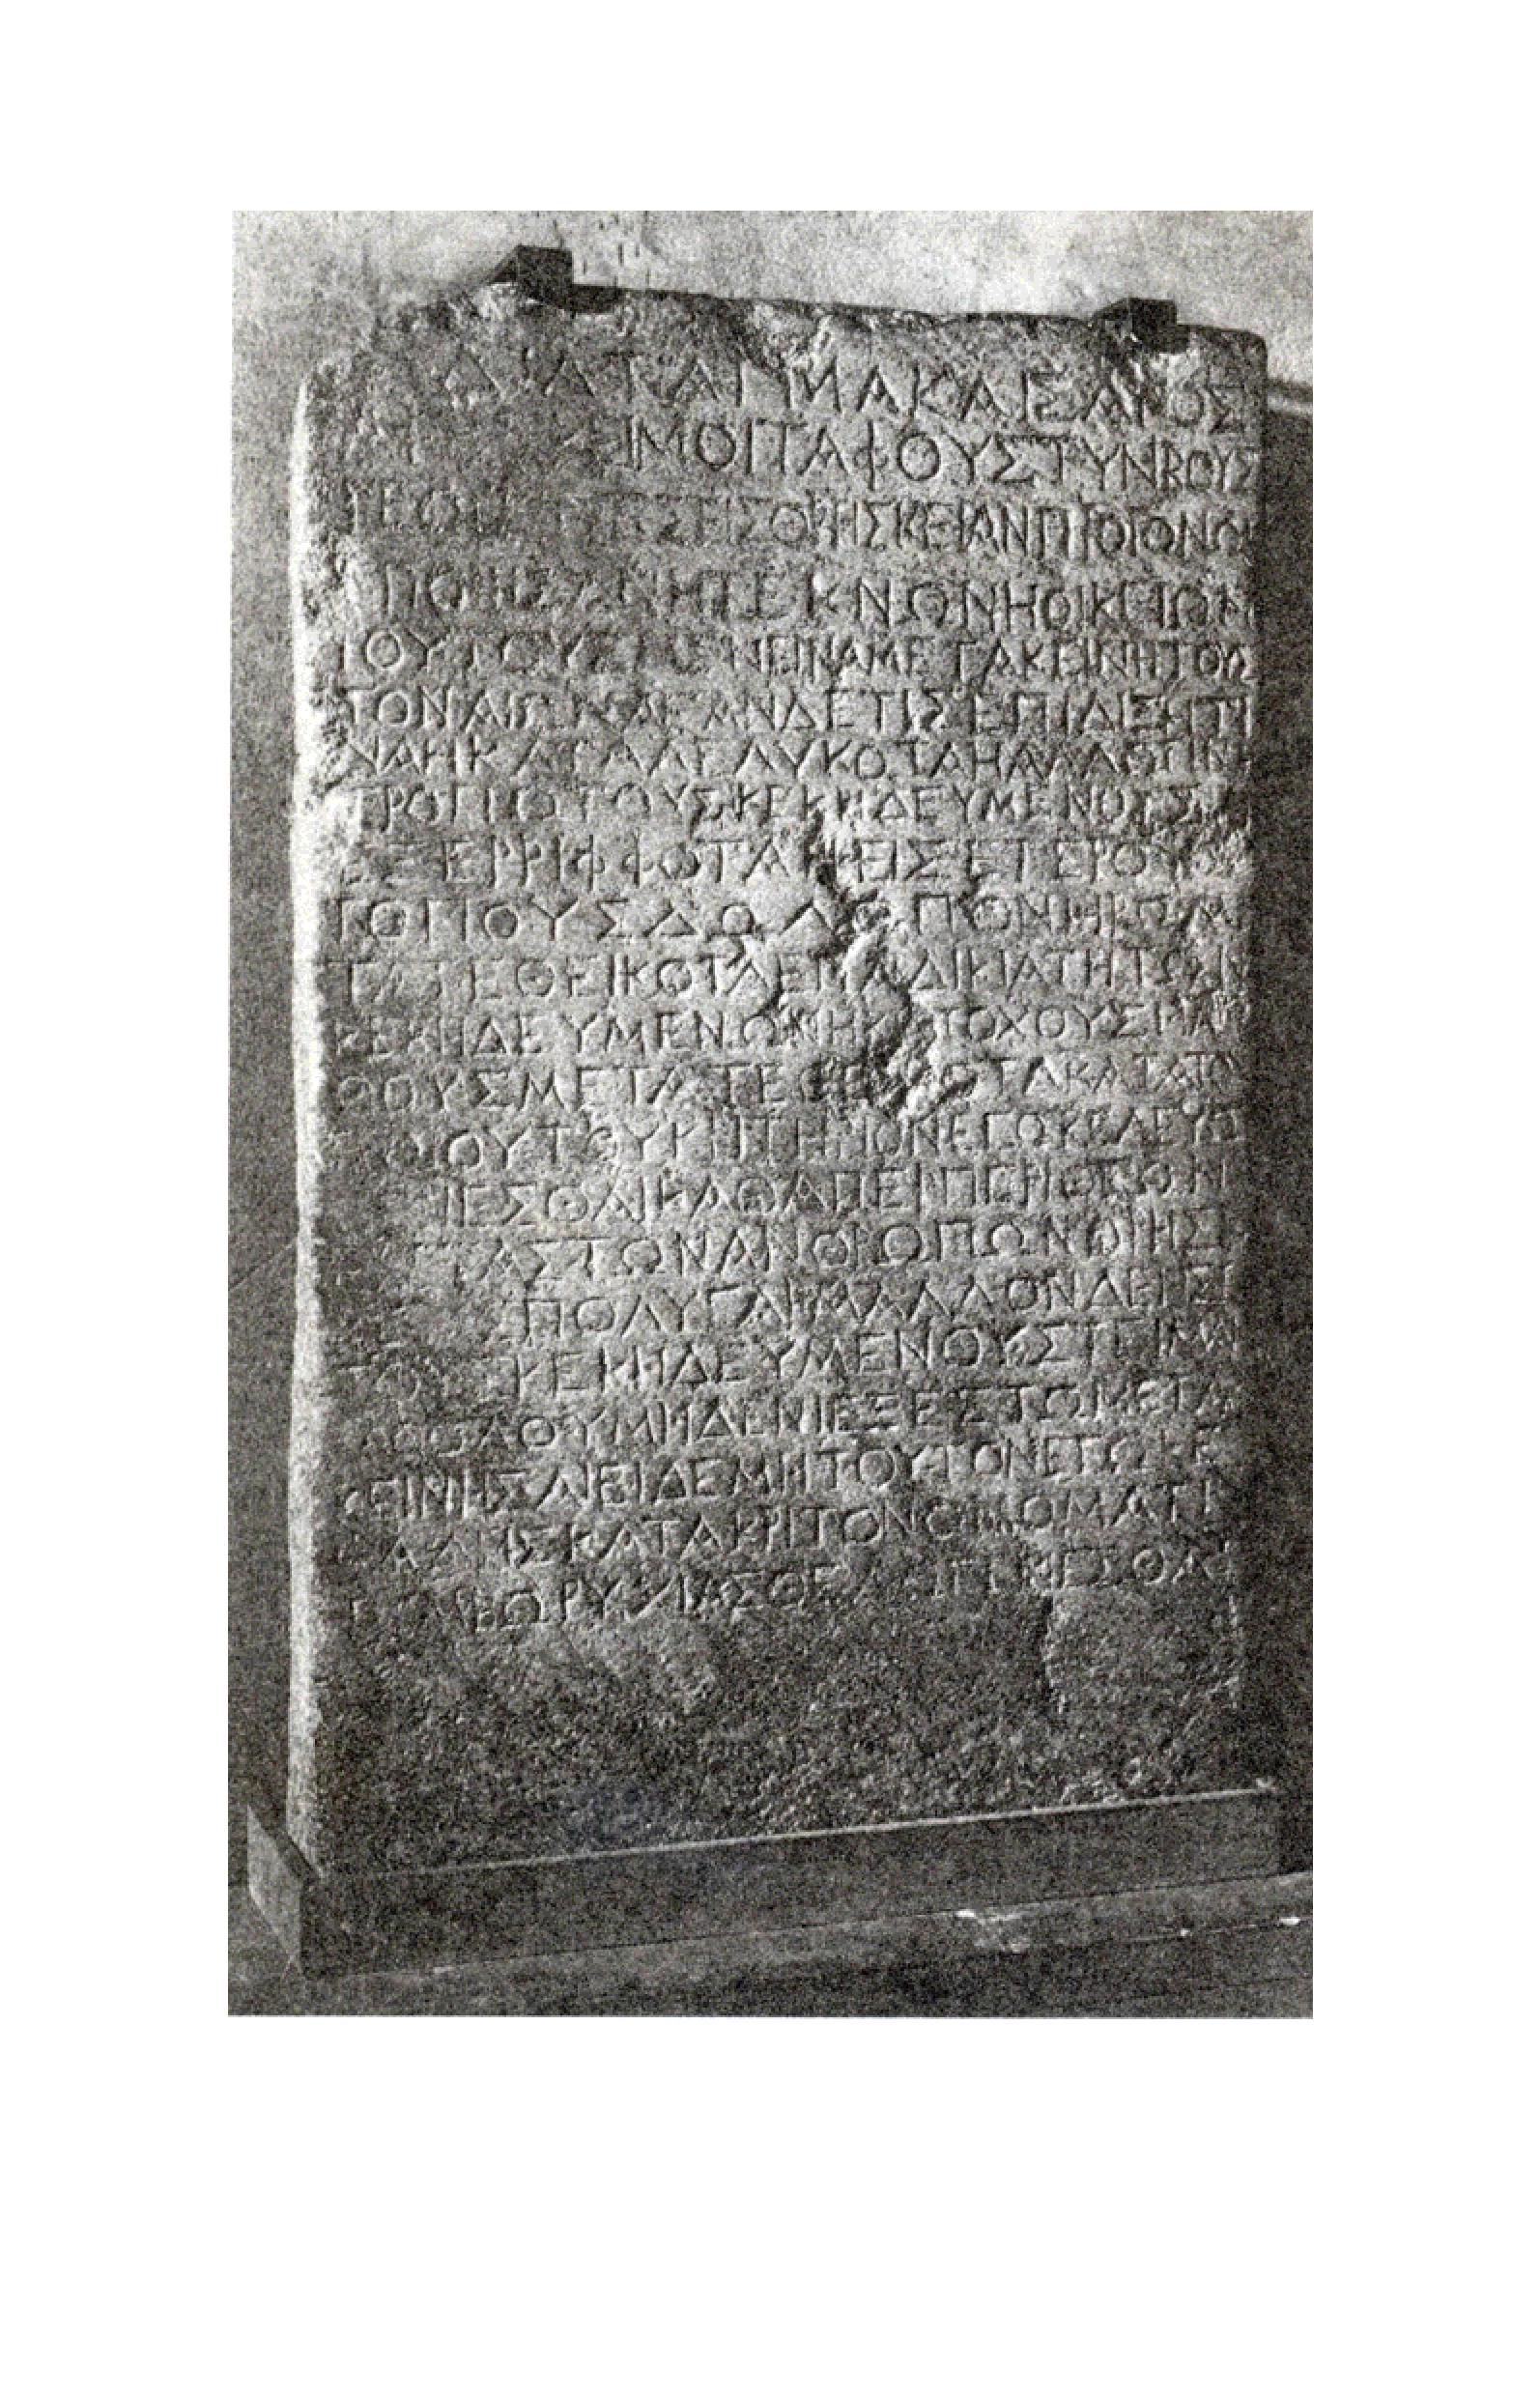 ΔΙΑΤΑΓΜΑ ΚΑΙΣΑΡΟΣ
ΜΟΙ ΤΑΦΟΥΣ ΤΥΝΒΟΥΣ
ΤΕ ΕΙΣ ΘΡΗΣΚΕΙΑΝ ΠΡΟΓΟΝΩ
ΕΠΟΙΗΣΑΝ Η ΤΕΚΝΩΝ Η ΟΙΚΕΙΩΝ
ΤΟΥΤΟΥΣ ΜΕΝΕΙΝ ΑΜΕΤΑΚΕΙΝΗΤΟΥΣ
ΤΟΝ ΑΙΩΝΑ ΕΑΝ ΔΕ ΤΙΣ ΕΠΙΔΙΞΗ ΤΙ
ΝΑ Η ΚΑΤΑΛΕΛΥΚΟΤΑ Η ΑΛΛΩ ΤΙΝΙ
ΤΡΟΠΩ ΤΟΥΣ ΚΕΚΗΔΕΥΜΕΝΟΥΣ
ΕΞΕΡΡΙΦΦΟΤΑ Η ΕΙΣ ΕΤΕΡΟΥΣ
ΤΟΠΟΥΣ ΔΩΛΩ ΠΟΝΗΡΩ ΜΕ
ΤΑΤΕΘΕΙΚΟΤΑ ΕΠ ΑΔΙΚΙΑ ΤΗ ΤΩΝ
ΚΕΚΗΔΕΥΜΕΝΩΝ Η ΚΑΤΟΧΟΥΣ Η ΛΙ
ΘΟΥΣ ΜΕΤΑΤΕΘΕΙΚΟΤΑ ΚΑΤΑ ΤΟΥ
ΟΙΟΥΤΟΥ ΚΡΙΤΗΡΙΟΝ ΕΓΩ ΚΕΛΕΥΩ
ΓΕΝΕΣΘΑΙ ΚΑΘΑΠΕΡ ΠΕΡΙ ΘΕΩΝ
ΤΑΣ ΤΩΝ ΑΝΘΡΩΠΩΝ ΘΡΗΣ
ΠΟΛΥ ΓΑΡ ΜΑΛΛΟΝ ΔΕΗΣΕΙ
ΤΟΥΣ ΚΕΚΗΔΕΥΜΕΝΟΥΣ ΤΕΙΜΑΝ
ΚΑΘΟΛΟΥ ΜΗΔΕΝΙ ΕΞΕΣΤΩ ΜΕΤΑ
ΚΕΙΝΗΣΑΙ ΕΙ ΔΕ ΜΗ ΤΟΥΤΟΝ ΕΓΩ ΚΕ
ΦΑΛΗΣ ΚΑΤΑΚΡΙΤΟΝ ΟΝΟΜΑΤΙ
ΤΥΜΒΩΡΥΧΙΑΣ ΘΕΛΩ ΓΕΝΕΣΘΑΙ